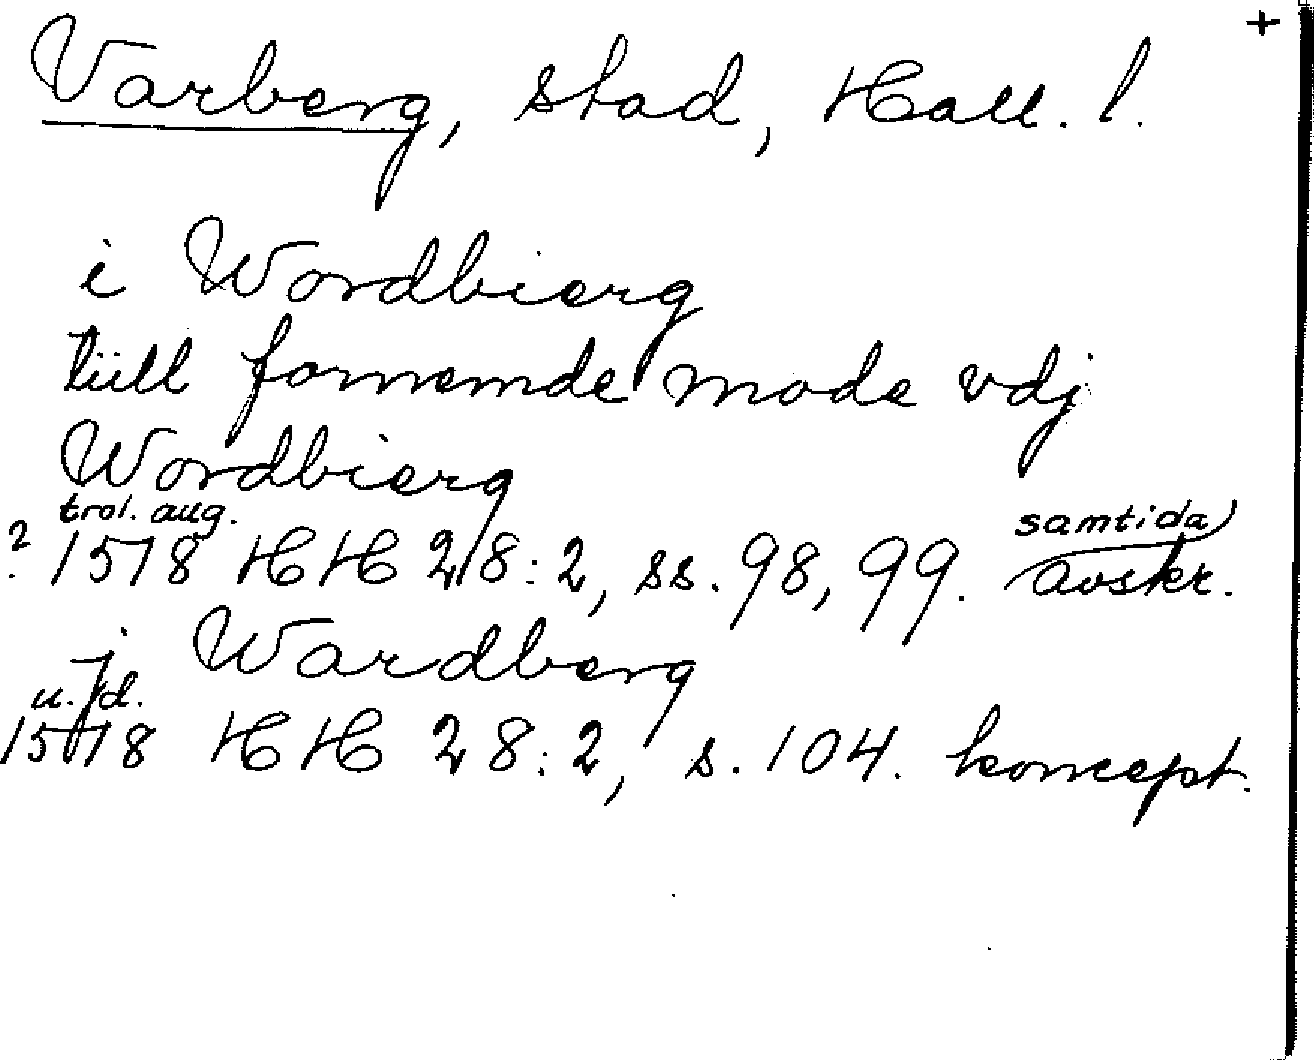 +
Varberg, stad, Hall. l.
i Wordbierg
tiill fornemde mode vdj
Wordbierg
trol. aug. samtida
? 1578 HH 28:2, ss. 98, 99. avskr.
j Wardberg
u. d.
1578 HH 28:2, s. 104. koncept.